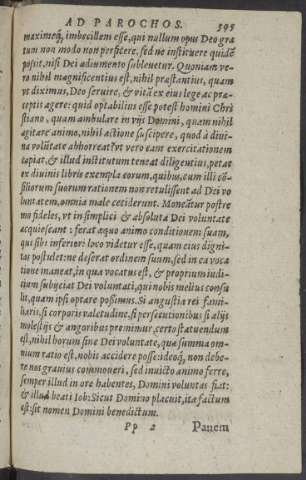 AD PAROCHOS. 595
maximeq́; imbecillem esse, qui nullum opus Deo gra
tum non modo non perficere, sed ne instituere quidẽ
possit, nisi Dei adiumento subleuetur. Quoniam ve-
ro nihil magnificentius est, nihil præstantius, quam
vt diximus, Deo seruire, & vitã ex eius lege ac præ-
ceptis agere: quid optabilius esse potest homini Chri
stiano, quam ambulare in vijs Domini, quam nihil
agitare animo, nihil actione suscipere, quod à diui-
na volũtate abhorreat? vt vero eam exercitationem
capiat, & illud institutum teneat diligentius, petat
ex diuinis libris exempla eorum, quibus, cum illi cõ-
siliorum suorum rationem non retulissent ad Dei vo
luntatem, omnia male ceciderunt. Moneãtur postre
mo fideles, vt in simplici & absoluta Dei voluntate
acquiescant: ferat æquo animo conditionem suam,
qui sibi inferiori loco videtur esse, quam eius digni-
tas postulet: ne deserat ordinem suum, sed in ea voca
tione maneat, in qua vocatus est, & proprium iudi-
cium subijciat Dei voluntati, qui nobis melius consu
lit, quam ipsi optare possimus. Si angustia rei fami-
liaris, si corporis valetudine, si persecutionibus si alijs
molestijs & angoribus premimur, certo statuendum
est, nihil horum sine Dei voluntate, quæ summa om-
nium ratio est, nobis accidere posse: ideoq́; non debe-
re nos grauius commoueri, sed inuicto animo ferre,
semper illud in ore habentes, Domini voluntas fiat:
& illud beati Iob: Sicut Domino placuit, ita factum
est: sit nomen Domini benedictum.
Pp 2 Panem